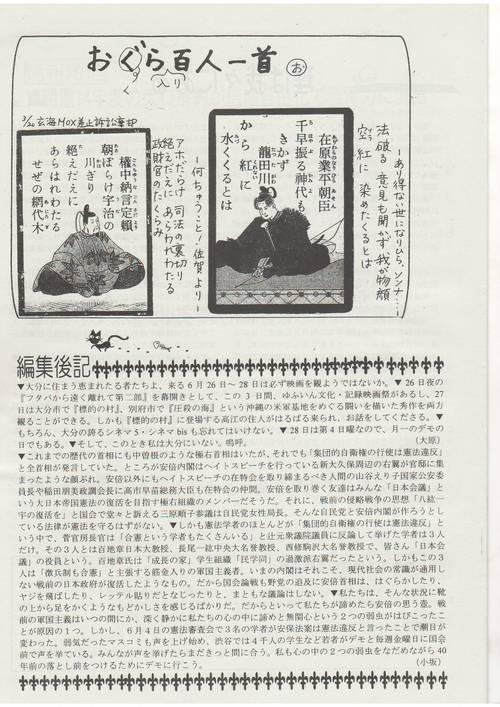 おぐら百人一首 お
くう入り
3/20 玄海MOX差止訴訟棄却
ーあり得ない世になりひら、ソンナ…ー
法破る 意見も聞かず 我が物顔
空 紅に 染めたくるとは
在原業平朝臣
千早振る神代も
きかず
龍田川
から紅に
水くくるとは
ー何ちゅうこと！佐賀よりー
アホだらけ 司法の裏切り
絶えだえに あらわれわたる
政財官のたくらみ
権中納言定頼
朝ぼらけ宇治の
川ぎり
絶えだえに
あらはれわたる
せぜの網代木
編集後記
▼大分に住まう恵まれたる者たちよ、来る6月26日～28日は必ず映画を観ようではないか。▼26日夜の
『フタバから遠く離れて第二部』を幕開きとして、この3日間、ゆふいん文化・記録映画祭があるし、27
日は大分市で『標的の村』、別府市で『圧殺の海』という沖縄の米軍基地をめぐる闘いを描いた秀作を両方
観ることができる。しかも『標的の村』に登場する高江の住人がはるばる来られ、お話をしてくださる。▼
もちろん、大分の誇るシネマ5・シネマbisも忘れてはいけない。▼28日は第4日曜なので、月一のデモの
日でもある。▼そして、このとき私は大分にいない。嗚呼。 （大原）
▼これまでの歴代の首相にも中曽根のような極右首相はいたが、それでも「集団的自衛権の行使は憲法違反」
と全首相が発言していた。ところが安倍内閣はヘイトスピーチを行っている新大久保周辺の右翼が官邸に集
まったような顔ぶれ。安倍以外にもヘイトスピーチの在特会を取り締まるべき人間の山谷えり子国家公安委
員長や稲田朋美政調会長に高市早苗総務大臣も在特会の仲間。安倍を取り巻く友達はみんな「日本会議」と
いう大日本帝国憲法の復活を目指す極右組織のメンバーだそうだ。それに、戦前の侵略戦争の思想「八紘一
宇の復活を」と国会で堂々と訴える三原順子参議は自民党女性局長。そんな自民党と安倍内閣が作ろうとし
ている法律が憲法を守るはずがない。▼しかも憲法学者のほとんどが「集団的自衛権の行使は憲法違反」と
いう中で、菅官房長官は「合憲という学者もたくさんいる」と辻元衆議院議員に反論して挙げた学者は3人
だけ。その3人とは百地章日本大教授、長尾一紘中央大名誉教授、西修駒沢大名誉教授で、皆さん「日本会
議」の役員という。百地章氏は「成長の家」学生組織「民学同」の過激派右翼だったという。しかもこの3
人は「徴兵制も合憲」と主張する筋金入りの軍国主義者。いまの内閣はそれこそ、現代社会の常識が通用し
ない戦前の日本政府が復活したようなもの。だから国会論戦も野党の追及に安倍首相は、はぐらかしたり、
ヤジを飛ばしたり、レッテル貼りだとなじったりと、まともな議論はしない。▼私たちは、そんな状況に靴
の上から足をかくようなもどかしさを感じるばかりだ。だからといって私たちが諦めたら安倍の思う壺。戦
前の軍国主義はいつの間にか、深く静かに私たちの心の中に諦めと無関心という2つの弱虫がはびこったこ
とが原因の1つ。しかし、6月4日の憲法審査会で3名の学者が安保法案は憲法違反と言ったことで潮目が
変わった。弱気だったマスコミも声を上げ始め、渋谷では4千人の学生など若者がデモと毎週金曜日に国会
前で声を挙げている。みんなが声を挙げたらまだきっと間に合う。私も心の中の2つの弱虫をなだめながら40
年前の落とし前をつけるためにデモに行こう。 （小坂）